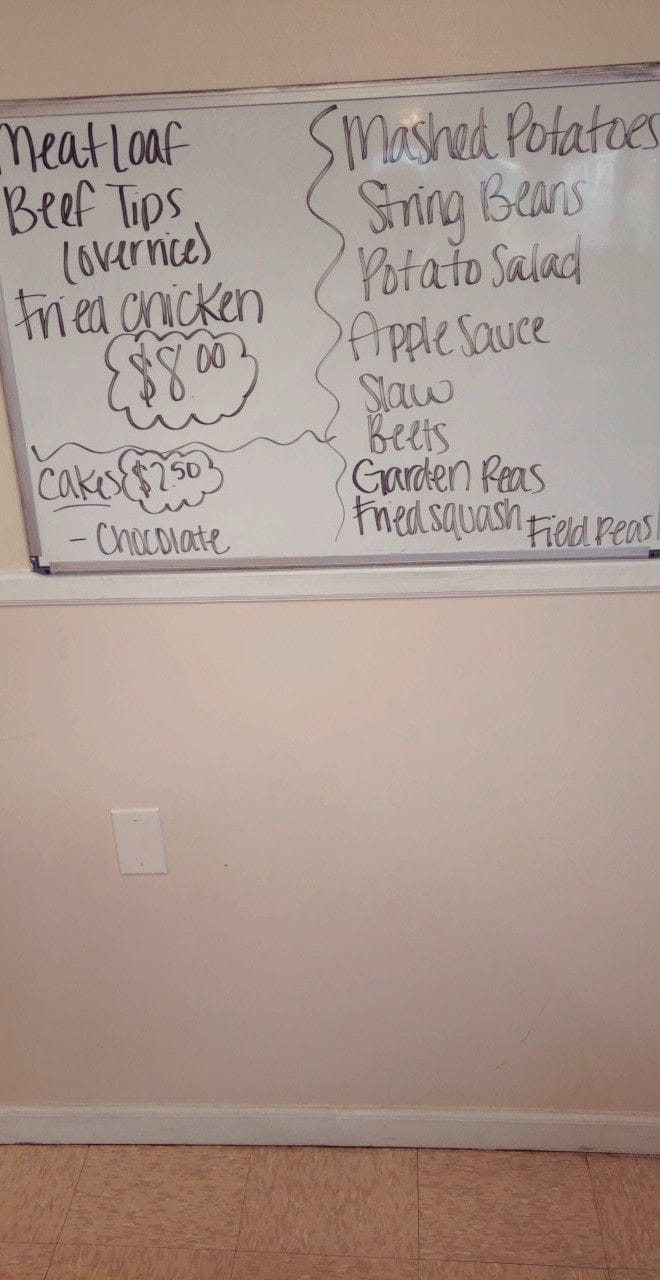 Meatloaf
Beef Tips
(over rice)
Fried chicken
$8.00
Cakes $2.50
- Chocolate
Mashed Potatoes
String Beans
Potato Salad
Apple Sauce
Slaw
Beets
Garden Peas
Fried squash
Field Peas